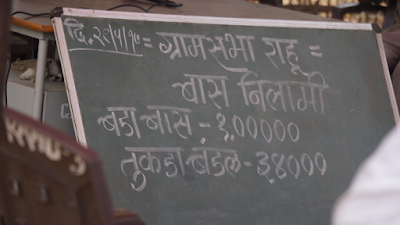 दि. २९/५/१५ = ग्रामसभा राहू =
बास निलामी
बडा बास - १,०००००
तुकडा बंडल - ३४०००